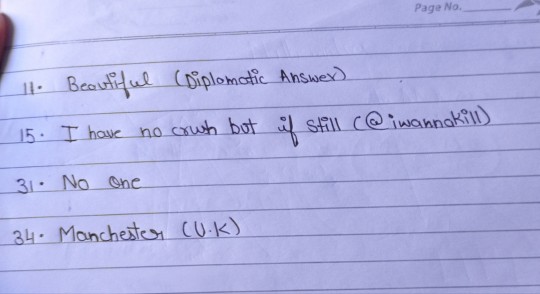 Page No.
11. Beautiful (Diplomatic Answer)
15. I have no crush but if still (@iwannakill)
31. No one
34. Manchester (U.K)